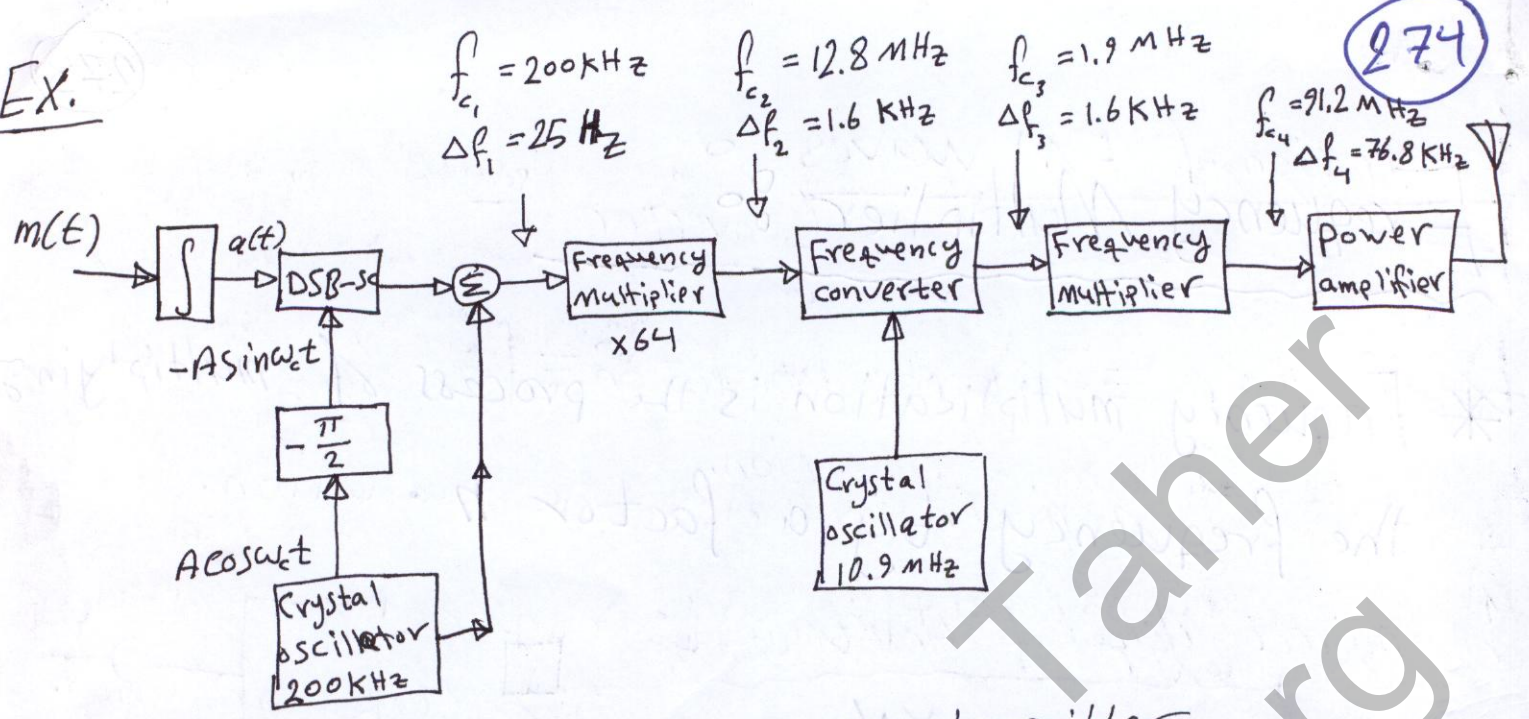 274
EX.
f_c₁ = 200 KHz
Δf₁ = 25 Hz
f_c₂ = 12.8 MHz
Δf₂ = 1.6 KHz
f_c₃ = 1.9 MHz
Δf₃ = 1.6 KHz
f_c₄ = 91.2 MHz
Δf₄ = 76.8 KHz
m(t)
∫
a(t)
DSB-SC
Σ
Frequency
Multiplier
x64
Frequency
converter
Frequency
multiplier
power
amplifier
-A sin ω_c t
-π/2
A cos ω_c t
Crystal
oscillator
200 KHz
Crystal
oscillator
10.9 MHz
Taher